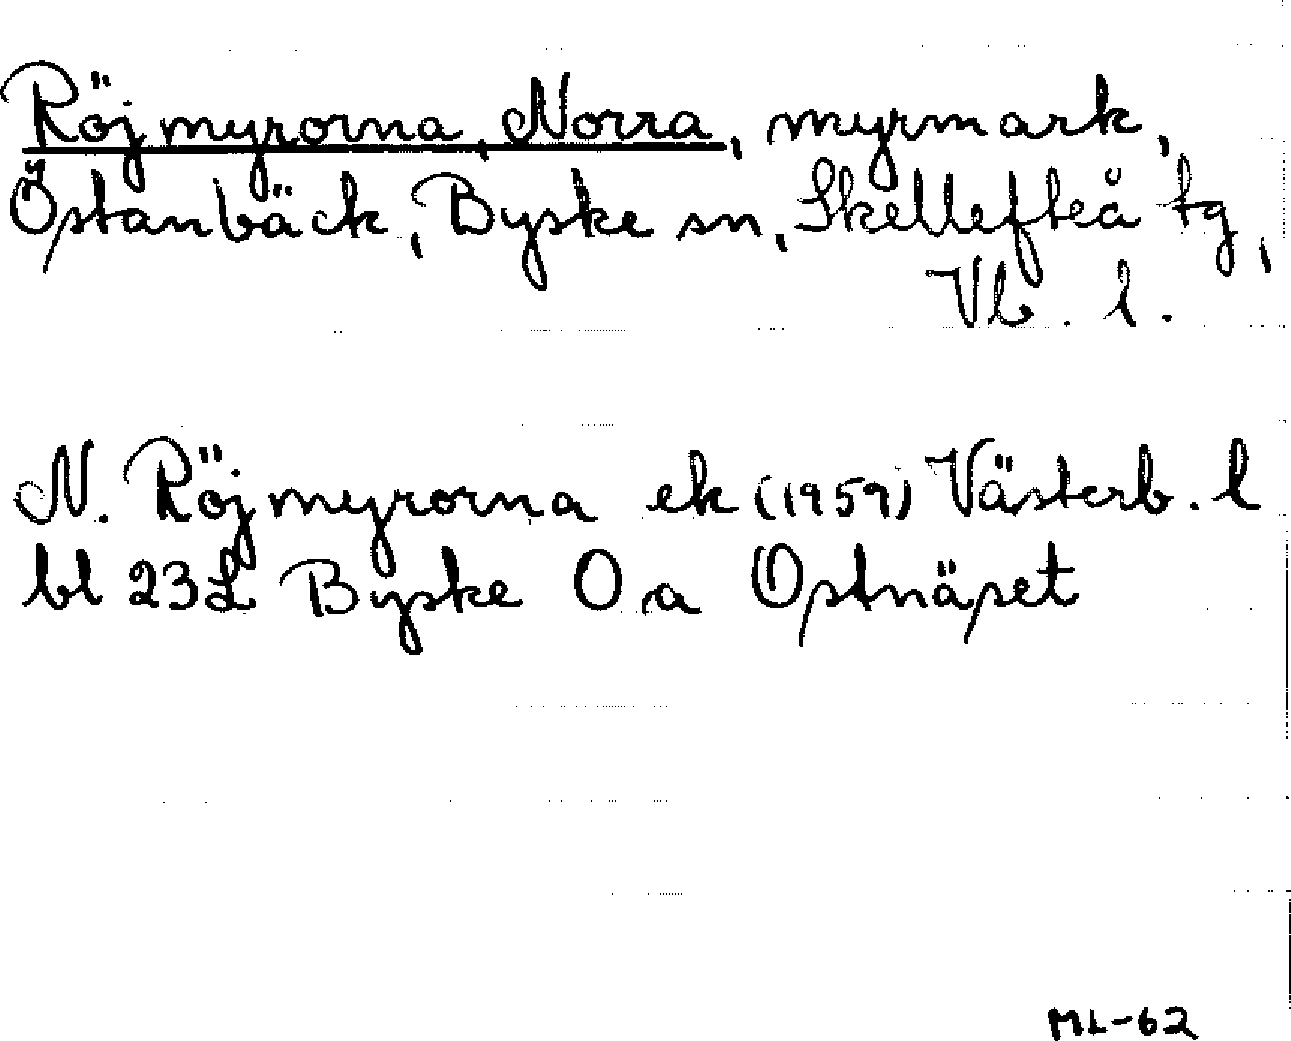 Röjmyrorna, Norra, myrmark,
Östanbäck, Byske sn, Skellefteå tg,
Vb. l.
N. Röjmyrorna ek (1959) Västerb. l
bl 23L Byske O, a Ostnäset
ML-62